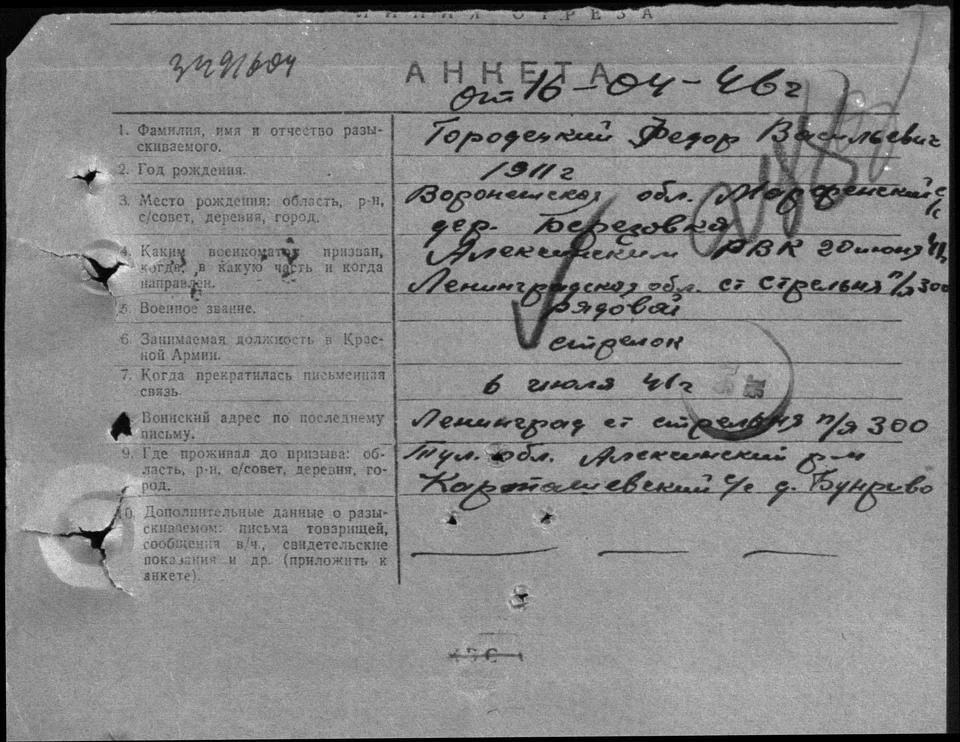 ЛИНИЯ ОТРЕЗА
АНКЕТА
от 16-04-46 г
1. Фамилия, имя и отчество разы-
скиваемого.
Городецкий Федор Васильевич
2. Год рождения.
1911 г
3. Место рождения: область, р-н,
с/совет, деревня, город.
Воронежская обл.
дер. Березовка
4. Каким военкоматом призван,
когда, в какую часть и когда
направлен.
Алексинским РВК 20 июня 41
Ленинградская обл. ст Стрельня п/я 300
5. Военное звание.
рядовой
6. Занимаемая должность в Крас-
ной Армии.
стрелок
7. Когда прекратилась письменная
связь.
6 июля 41 г
Воинский адрес по последнему
письму.
Ленинград ст стрельня п/я 300
9. Где проживал до призыва: об-
ласть, р-н, с/совет, деревня, го-
род.
Тул. обл. Алексинский р-н
с/с д.
10. Дополнительные данные о разы-
скиваемом: письма товарищей,
сообщения в/ч., свидетельские
показания и др. (приложить к
анкете).